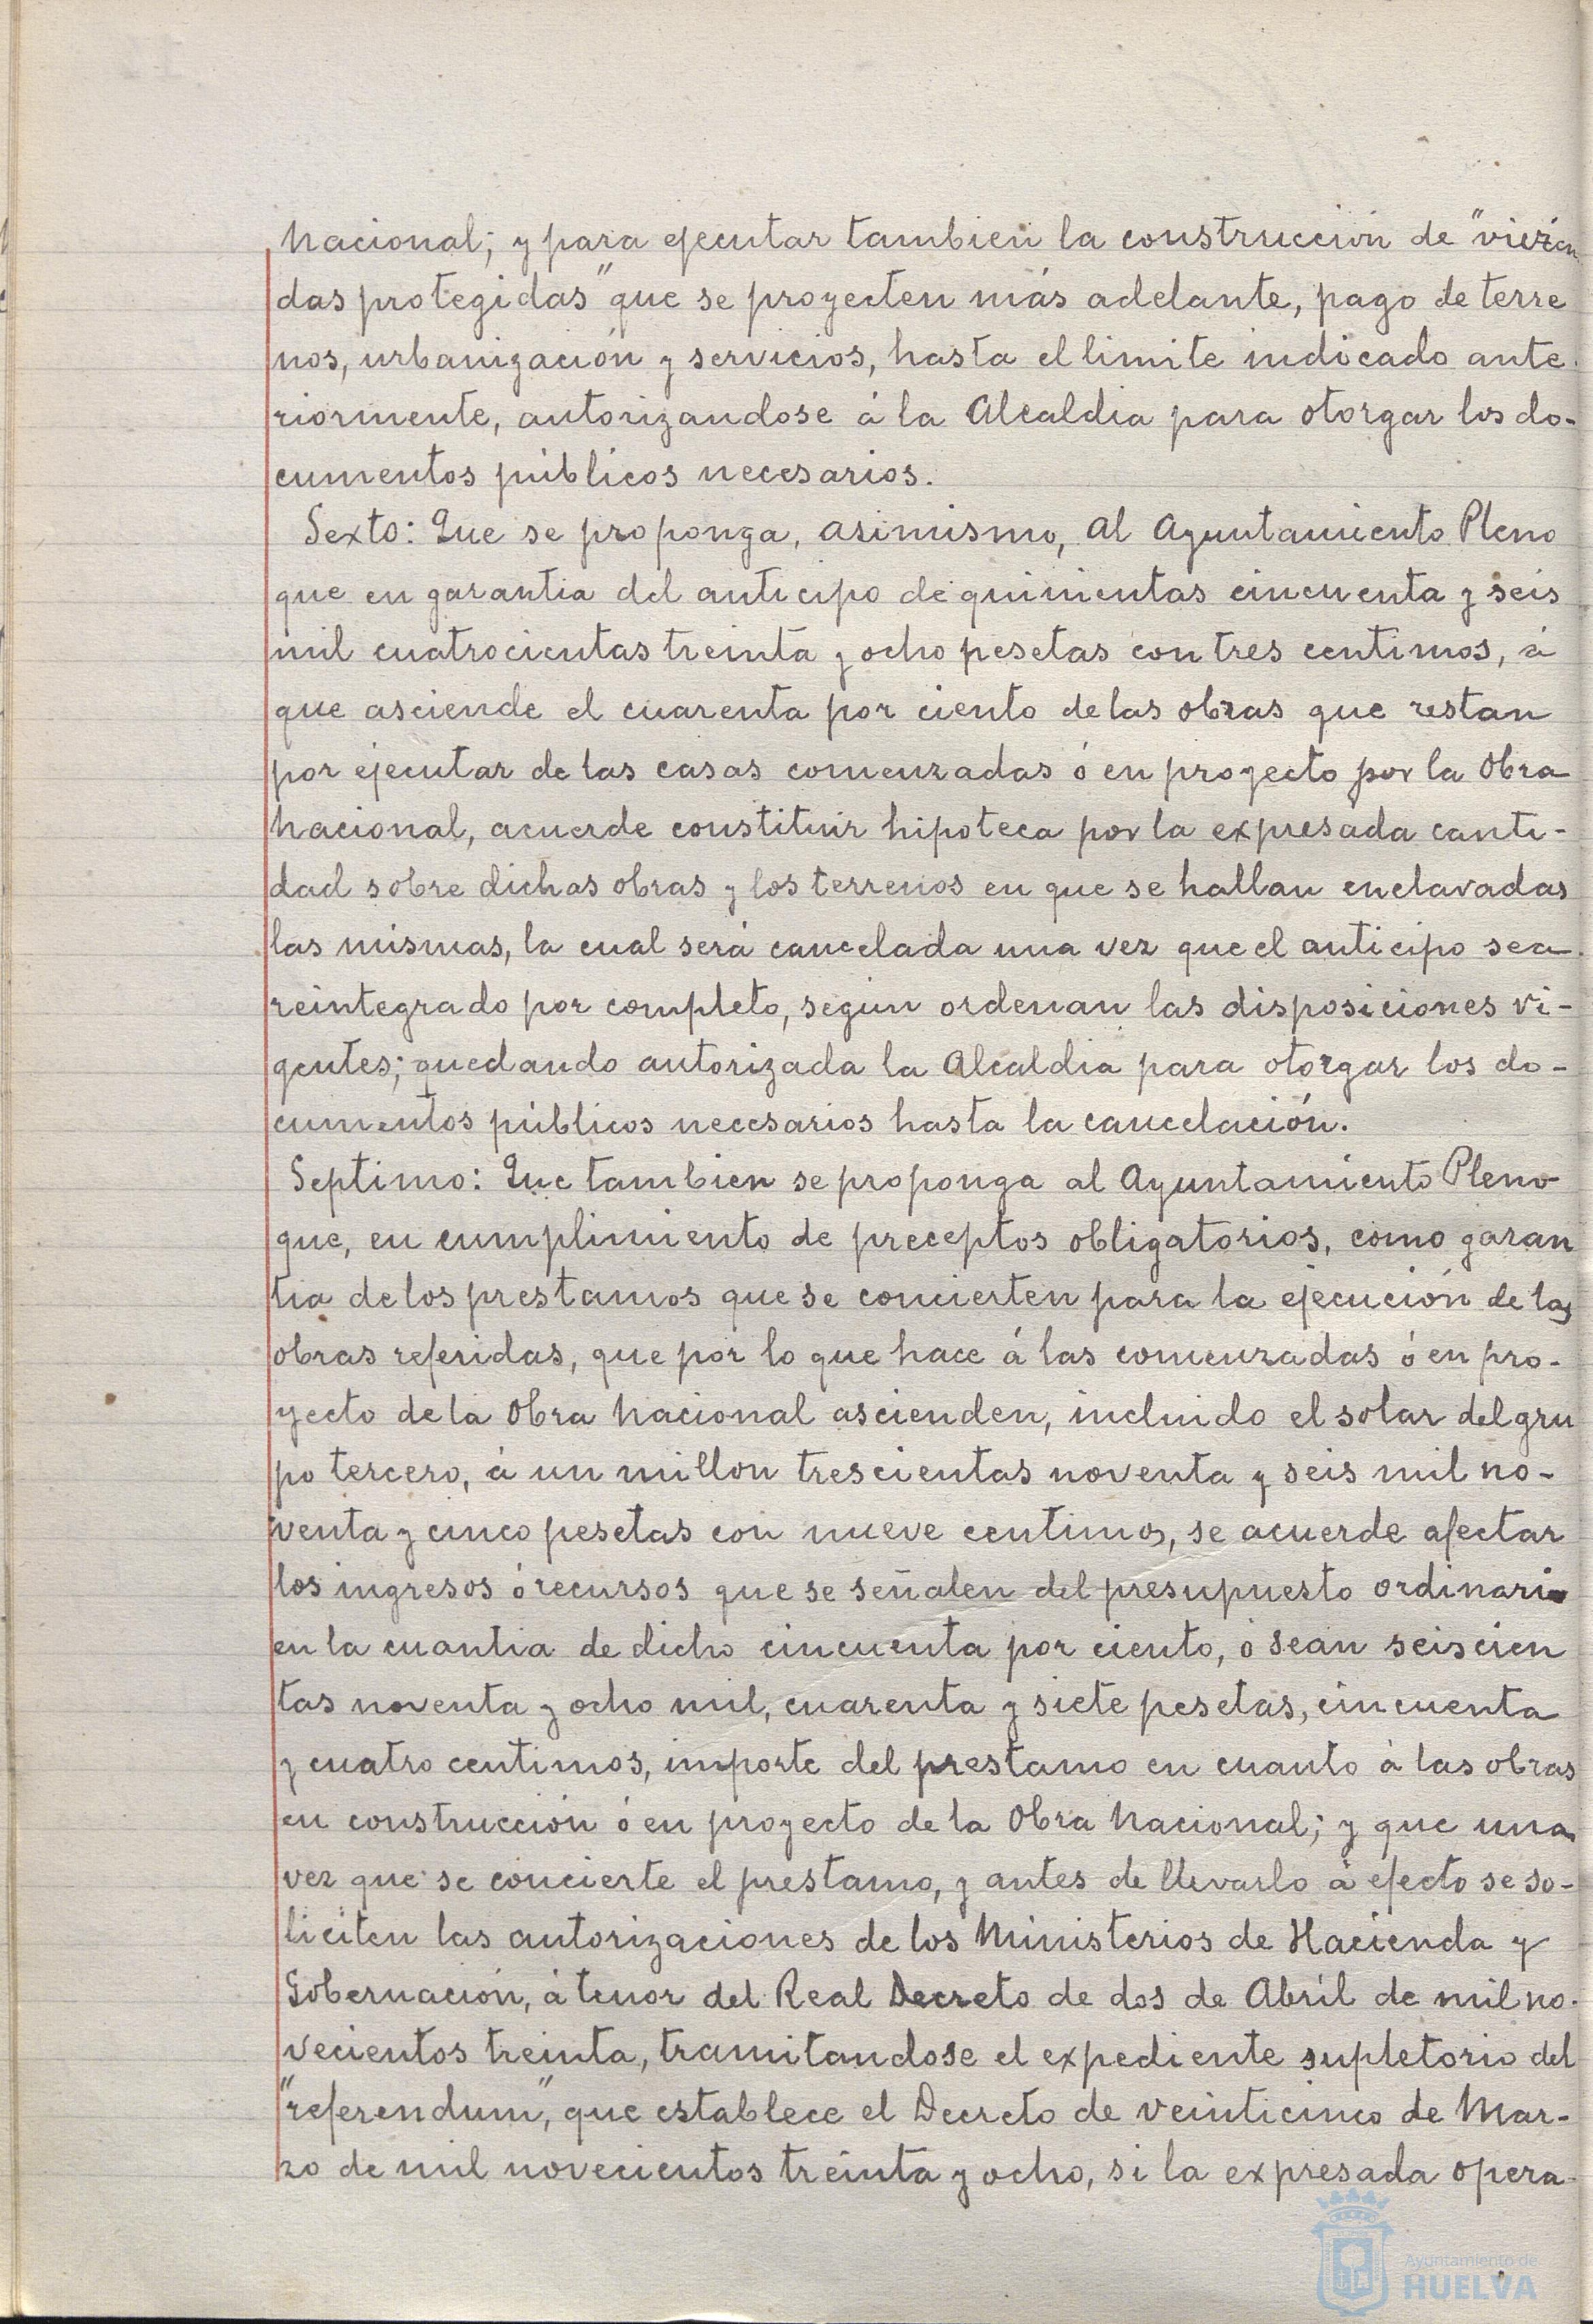 Nacional; y para ejecutar tambien la construcción de "vivien
das protegidas" que se proyecten más adelante, pago de terre
nos, urbanización y servicios, hasta el limite indicado ante-
riormente, autorizandose á la Alcaldia para otorgar los do-
cumentos públicos necesarios.
Sexto: Que se proponga, asimismo, al Ayuntamiento Pleno
que en garantia del anticipo de quinientas cincuenta y seis
mil cuatrocientas treinta y ocho pesetas con tres centimos, á
que asciende el cuarenta por ciento de las obras que restan
por ejecutar de las casas comenzadas ó en proyecto por la Obra
Nacional, acuerde constituir hipoteca por la expresada canti-
dad sobre dichas obras y los terrenos en que se hallan enclavadas
las mismas, la cual será cancelada una vez que el anticipo sea
reintegrado por completo, según ordenan las disposiciones vi-
gentes; quedando autorizada la Alcaldia para otorgar los do-
cumentos públicos necesarios hasta la cancelación.
Septimo: Que tambien se proponga al Ayuntamiento Pleno
que, en cumplimiento de preceptos obligatorios, como garan
tia de los prestamos que se concierten para la ejecución de las
obras referidas, que por lo que hace á las comenzadas ó en pro-
yecto de la Obra Nacional ascienden, incluido el solar del gru
po tercero, á un millon trescientas noventa y seis mil no-
venta y cinco pesetas con nueve centimos, se acuerde afectar
los ingresos ó recursos que se señalen del presupuesto ordinario
en la cuantia de dicho cincuenta por ciento, ó sean seiscien
tas noventa y ocho mil, cuarenta y siete pesetas, cincuenta
y cuatro centimos, importe del prestamo en cuanto á las obras
en construcción ó en proyecto de la Obra Nacional; y que una
vez que se concierte el prestamo, y antes de llevarlo á efecto se so-
liciten las autorizaciones de los Ministerios de Hacienda y
Gobernación, á tenor del Real Decreto de dos de Abril de mil no-
vecientos treinta, tramitandose el expediente supletorio del
"referendum", que establece el Decreto de veinticinco de Mar-
zo de mil novecientos treinta y ocho, si la expresada opera-
Ayuntamiento de
HUELVA